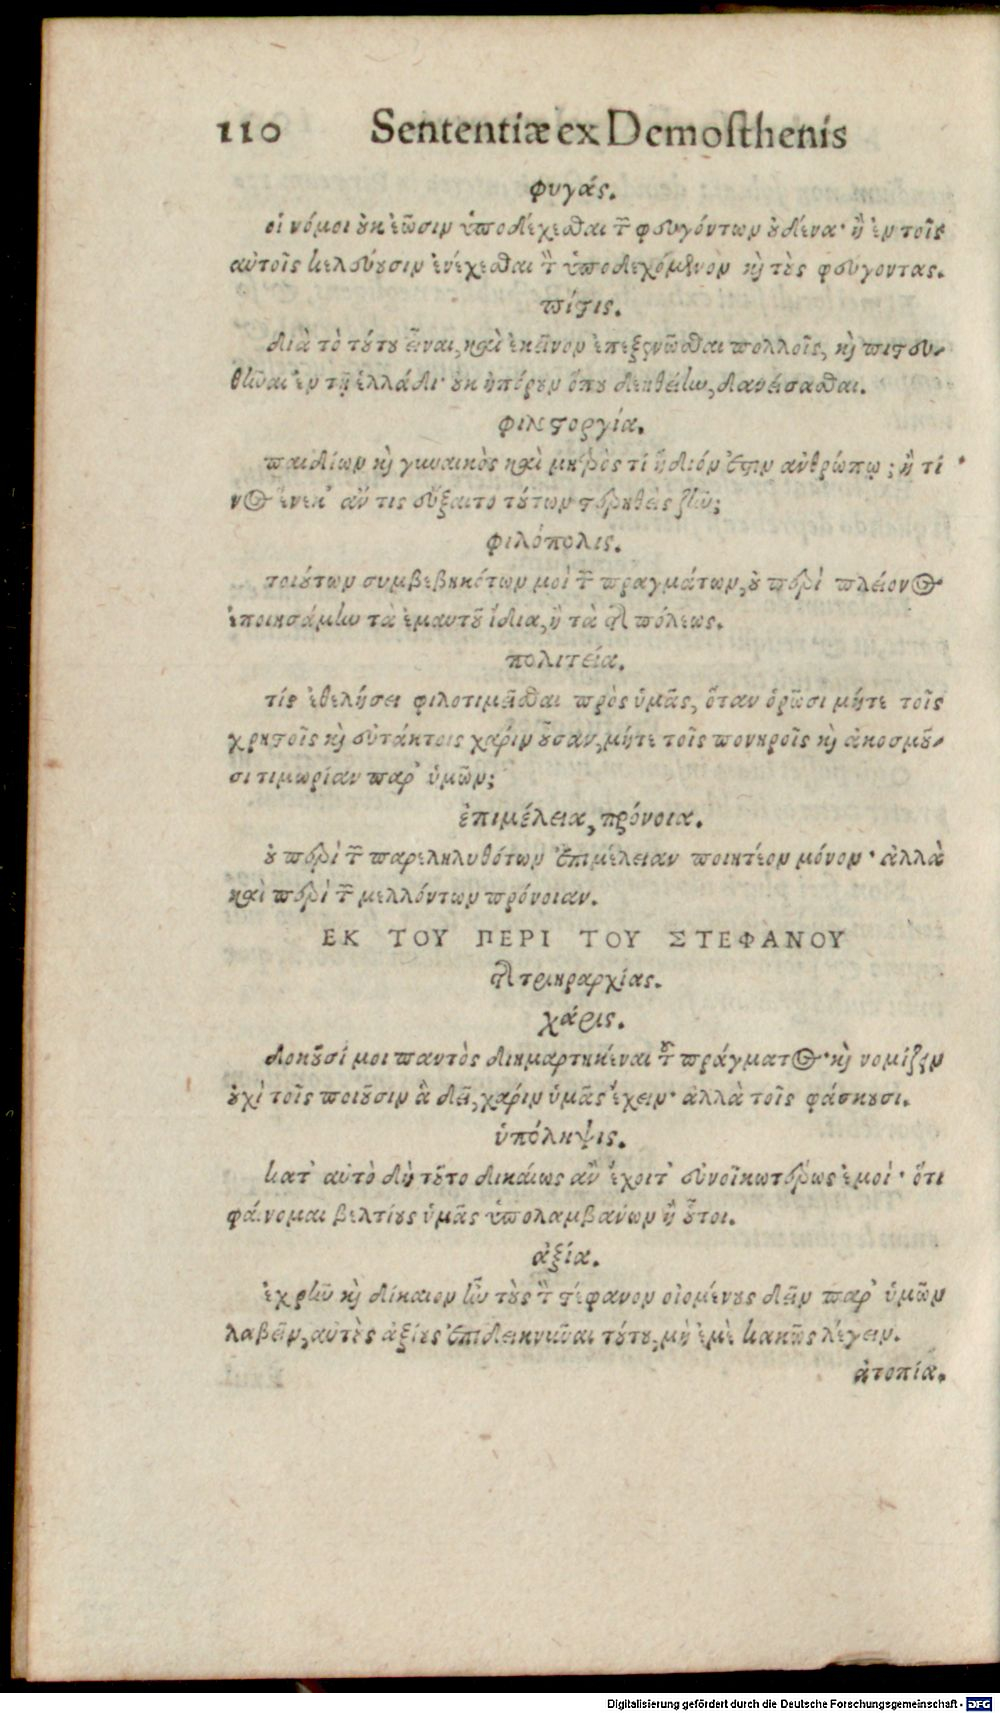 110 Sententiæ ex Demosthenis
φυγάς.
οἱ νόμοι οὐκ ἐῶσιν ὑποδέχεσθαι τῶν φευγόντων οὐδένα· ἢ ἐν τοῖς
αὐτοῖς κελεύουσιν ἐνέχεσθαι τὸν ὑποδεχόμενον καὶ τοὺς φεύγοντας.
πίστις.
διὰ τὸ τούτου εἶναι, καὶ ἐκεῖνον ἐπεξενῶσθαι πολλοῖς, καὶ πιστευ-
θῆναι ἐν τῇ ἑλλάδι· οὐκ ἠπόρουν ὅπου δεηθείην, δανείσασθαι.
φιλοστοργία.
παιδίων καὶ γυναικὸς καὶ μητρὸς τί ἥδιόν ἐστιν ἀνθρώπῳ; ἢ τί
νος ἕνεκ' ἄν τις εὔξαιτο τούτων στερηθεὶς ζῆν;
φιλόπολις.
τοιούτων συμβεβηκότων μοὶ τῶν πραγμάτων, οὐ περὶ πλείονος
ἐποιησάμην τὰ ἐμαυτοῦ ἴδια, ἢ τὰ τῆς πόλεως.
πολιτεία.
τίς ἐθελήσει φιλοτιμεῖσθαι πρὸς ὑμᾶς, ὅταν ὁρῶσι μήτε τοῖς
χρηστοῖς καὶ εὐτάκτοις χάριν οὖσαν, μήτε τοῖς πονηροῖς καὶ ἀκοσμοῦ-
σι τιμωρίαν παρ' ὑμῶν;
ἐπιμέλεια, πρόνοια.
οὐ περὶ τῶν παρεληλυθότων ἐπιμέλειαν ποιητέον μόνον· ἀλλὰ
καὶ περὶ τῶν μελλόντων πρόνοιαν.
ΕΚ ΤΟΥ ΠΕΡΙ ΤΟΥ ΣΤΕΦΑΝΟΥ
τῆς τριηραρχίας.
χάρις.
δοκοῦσί μοι παντὸς διημαρτηκέναι τοῦ πράγματος· καὶ νομίζειν
οὐχὶ τοῖς ποιοῦσιν ἃ δεῖ, χάριν ὑμᾶς ἔχειν· ἀλλὰ τοῖς φάσκουσι.
ὑπόληψις.
κατ' αὐτὸ δὴ τοῦτο δικαίως ἂν ἔχοιτ' εὐνοϊκωτέρως ἐμοὶ· ὅτι
φαίνομαι βελτίους ὑμᾶς ὑπολαμβάνων ἢ οὗτοι.
ἀξία.
ἐχρῆν καὶ δίκαιον ἦν τοὺς τὸν στέφανον οἰομένους δεῖν παρ' ὑμῶν
λαβεῖν, αὐτοὺς ἀξίους ἐπιδεικνύναι τούτου, μὴ ἐμὲ κακῶς λέγειν.
ἀτοπία.
Digitalisierung gefördert durch die Deutsche Forschungsgemeinschaft - DFG